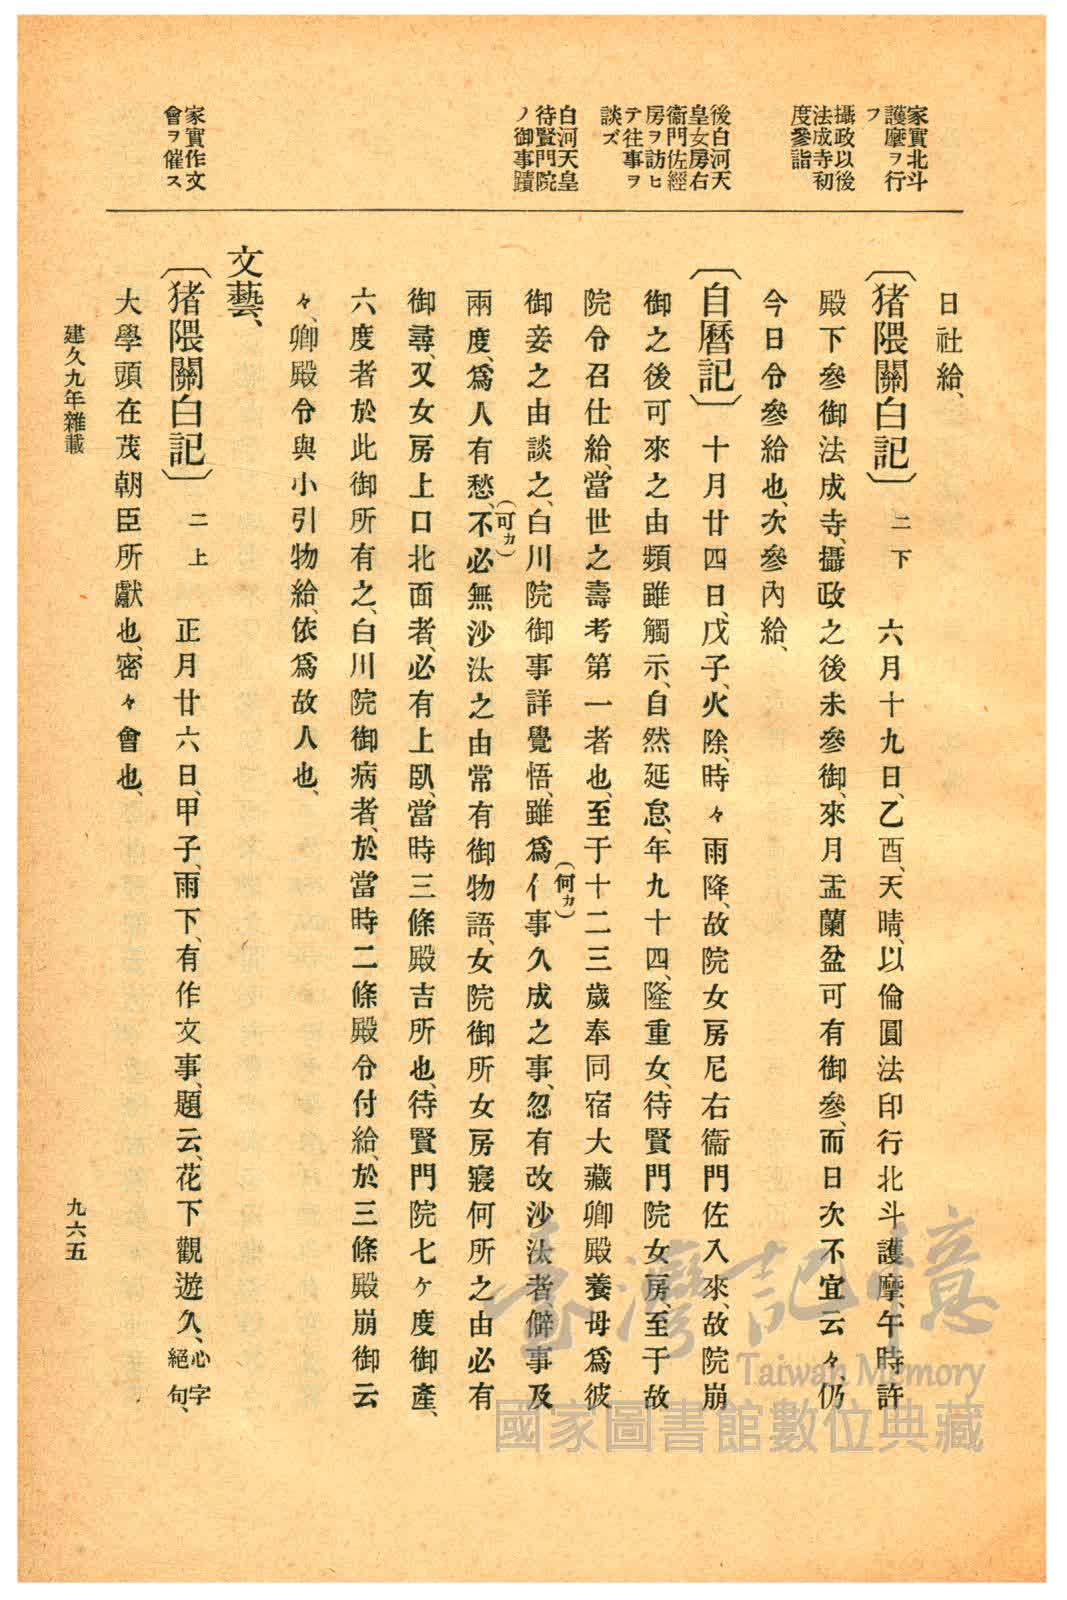 家實北斗
護摩ヲ行
フ
攝政以後
法成寺初
度參詣
後白河天
皇女房右
衞門佐經
房ヲ訪ヒ
テ往事ヲ
談ズ
白河天皇
待賢門院
ノ御事蹟
家實作文
會ヲ催ス
日社給、
〔猪隈關白記〕 二下 六月十九日、乙酉、天晴、以倫圓法印行北斗護摩、午時許
殿下參御法成寺、攝政之後未參御、來月盂蘭盆可有御參、而日次不宜云々、仍
今日令參給也、次參內給、
〔自曆記〕 十月廿四日、戊子、火除、時々雨降、故院女房尼右衞門佐入來、故院崩
御之後可來之由頻雖觸示、自然延怠、年九十四、隆重女、待賢門院女房、至于故
院令召仕給、當世之壽考第一者也、至于十二三歲奉同宿大藏卿殿養母爲彼
御妾之由談之、白川院御事詳覺悟、雖爲亻(何カ)事久成之事、忽有改沙汰者、僻事及
兩度、爲人有愁、不(可カ)必無沙汰之由常有御物語、女院御所女房寢何所之由必有
御尋、又女房上口北面者、必有上臥、當時三條殿吉所也、待賢門院七ケ度御產、
六度者於此御所有之、白川院御病者、於當時二條殿令付給、於三條殿崩御云
々、卿殿令與小引物給、依爲故人也、
文藝、
〔猪隈關白記〕 二上 正月廿六日、甲子、雨下、有作文事、題云、花下觀遊久、心字絕句、
大學頭在茂朝臣所獻也、密々會也、
建久九年雜載
九六五
臺灣記憶
Taiwan Memory
國家圖書館數位典藏